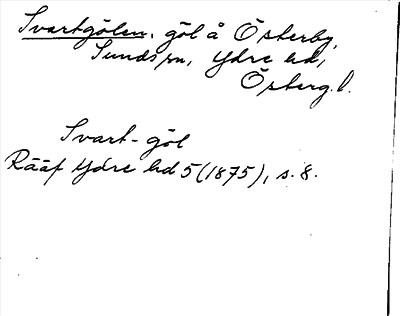 Svartgölen, göl å Österby,
Sunds sn, Ydre hd,
Österg.l.
Svart-göl
Rääf Ydre hd 5 (1875), s. 8.